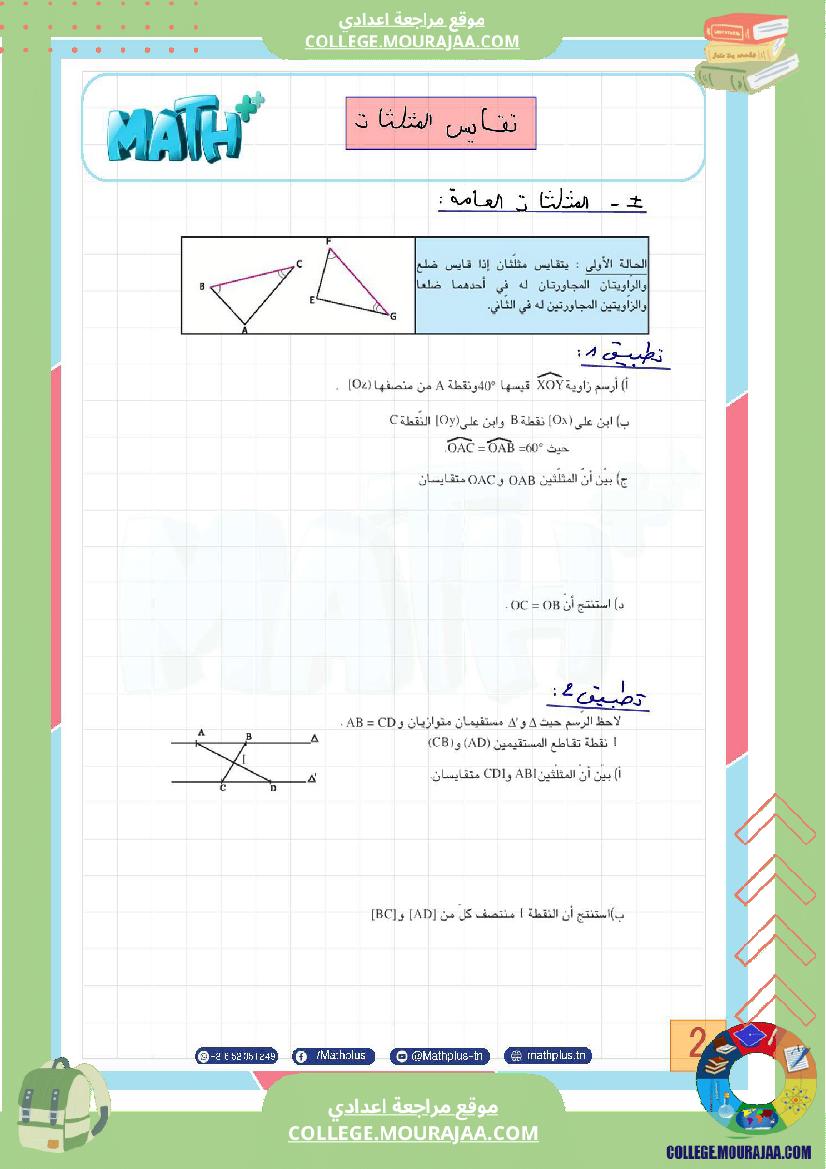 موقع مراجعة اعدادي
COLLEGE.MOURAJAA.COM
MATH++
تقايس المثلثات
I - المثلثات العامة :
الحالة الأولى : يتقايس مثلّثان إذا قايس ضلع
والزّاويتان المجاورتان له في أحدهما ضلعا
والزّاويتين المجاورتين له في الثّاني.
B
C
A
F
E
G
تطبيق 1 :
أ) أرسم زاوية XOY قيسها 40° ونقطة A من منصفها [Oz) .
ب) ابن على [Ox) نقطة B وابن على [Oy) النّقطة C
حيث OAC = OAB =60°.
ج) بيّن أنّ المثلّثين OAB و OAC متقايسان
د) استنتج أنّ OC = OB .
تطبيق 2 :
لاحظ الرّسم حيث Δ و Δ' مستقيمان متوازيان و AB = CD .
I نقطة تقاطع المستقيمين (AD) و (CB)
أ) بيّن أنّ المثلّثين ABI و CDI متقايسان.
A
B
Δ
I
C
D
Δ'
ب) استنتج أن النقطة I منتصف كلّ من [AD] و [BC]
/Mathplus
@Mathplus-tn
mathplus.tn
2
موقع مراجعة اعدادي
COLLEGE.MOURAJAA.COM
COLLEGE.MOURAJAA.COM